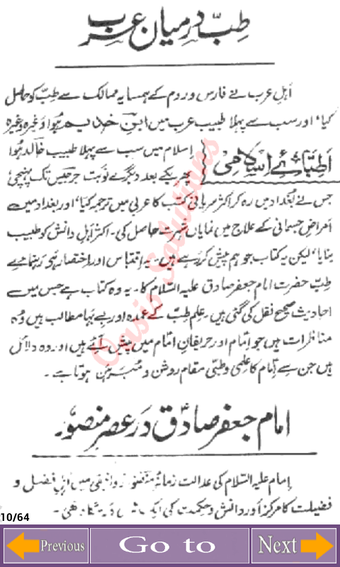 طب درمیان عرب
اہل عرب نے فارس و روم کے ہمسایہ ممالک سے طب کو حاصل
کیا، اور سب سے پہلا طبیب عرب میں ہوا وغیرہ وغیرہ
اطبائے اسلامی
اسلام میں سب سے پہلا طبیب خالد ہوا
پھر یکے بعد دیگرے نوبت جرجیس تک پہنچی
جس نے بغداد میں رہ کر اکثر سریانی کتب کا عربی میں ترجمہ کیا، اور بغداد میں
امراض جسمانی کے علاج میں نمایاں شہرت حاصل کی۔ اکثر اہل دانش کو طبیب
بنایا، لیکن یہ کتاب جو ہم پیش کر رہے ہیں۔ یہ اقتباس اور اختصار ہو رہا ہے
طب حضرت امام جعفر صادق علیہ السلام کا۔ یہ وہ کتاب ہے جس میں
احادیث صحیح نقل کی گئی ہیں۔ علم طب کے عمدہ اور بے بہا مطالب ہیں وہ
مناظرات ہیں جو امام اور حریفان امام میں پیش آئے ہیں اور وہ دلائل
ہیں جن سے امام کا علمی و طبی مقام روشن و مبرہن ہوتا ہے۔
امام جعفر صادق در عصر منصور۔
امام علیہ السلام کی عدالت زمانہ میں اہل فضل و
فضیلت کا مرکز اور دانش و حکمت کی
Oasis Solutions
10/64
Previous Go to Next